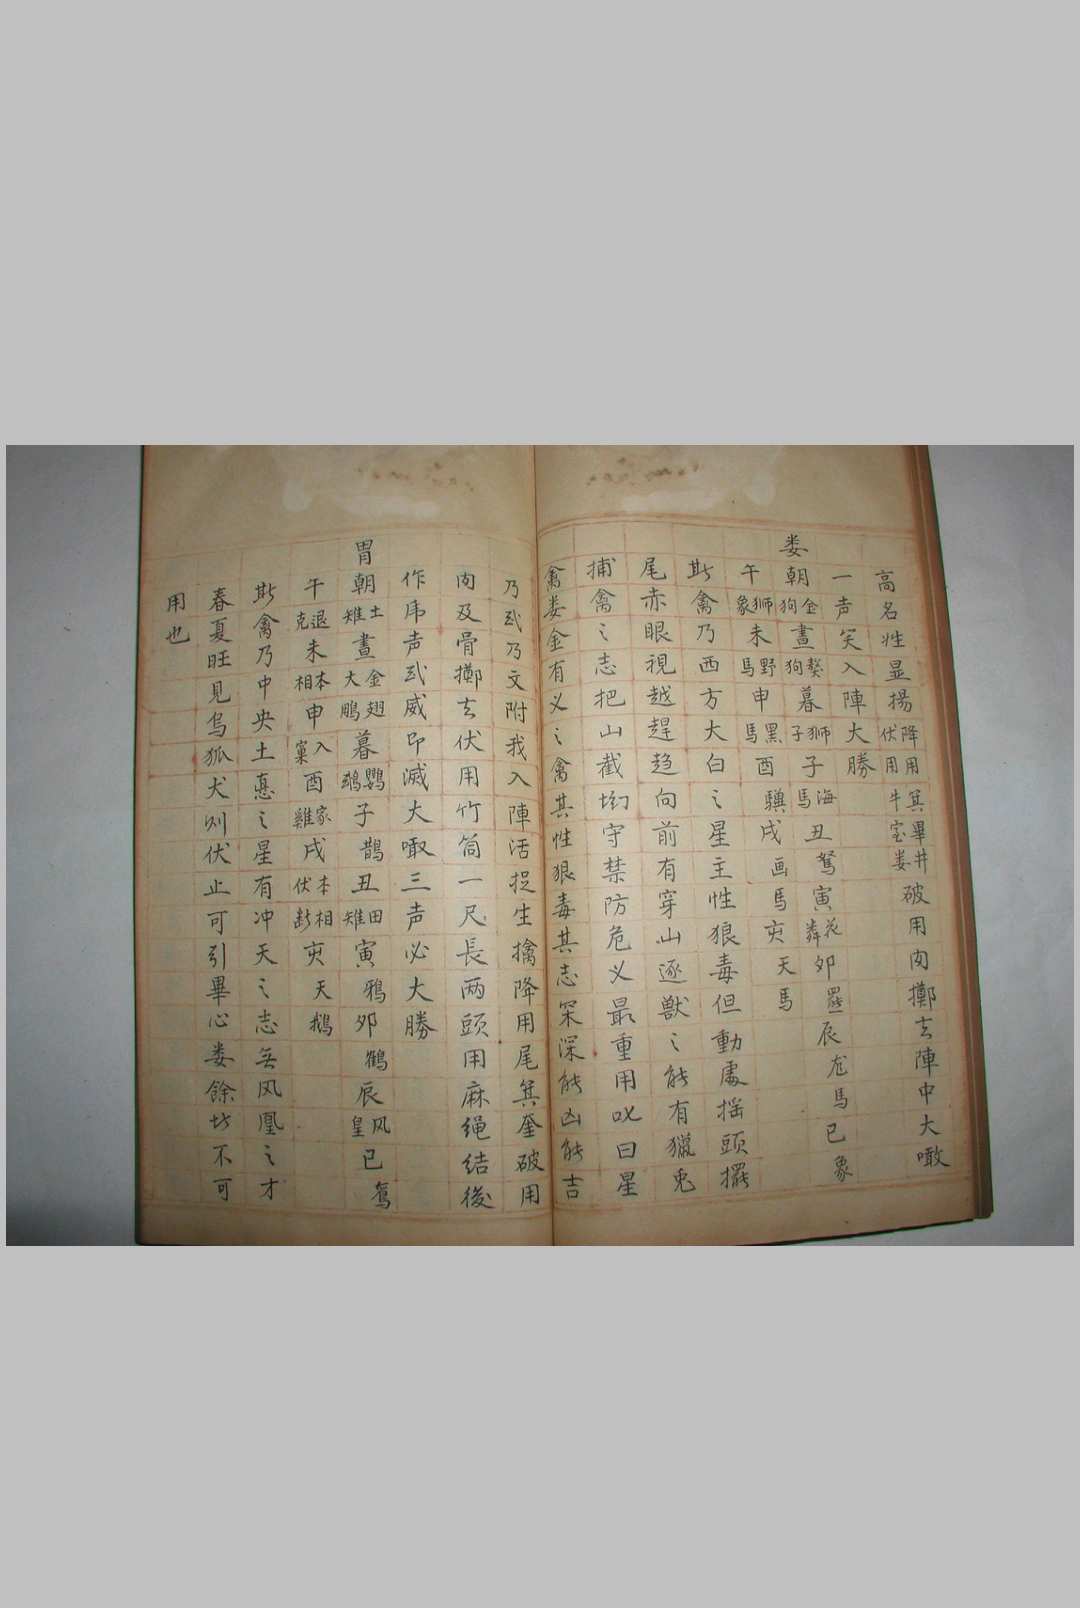 高名姓显揚降用伏用箕畢井牛室娄破用肉擲去陣中大噉
一声笑入陣大勝
娄朝金狗晝獒狗暮狮子子海馬丑駑寅花卯辰龙馬巳象
午狮象未野馬申黑馬酉戌画馬亥天馬
此禽乃西方大白之星主性狼毒但動處摇頭擺
尾赤眼視越趕趋向前有穿山逐獸之能有獵兎
捕禽之志把山截守禁防危义最重用叱曰星
禽娄金有义之禽其性狼毒其志深能凶能吉
乃武乃文附我入陣活捉生擒降用尾箕奎破用
肉及骨擲去伏用竹筒一尺長两頭用麻绳结後
作声武威印滅大噉三声必大勝
胃朝土雉晝金翅大鵰暮鸚鵡子鵲丑田雉寅鴉卯鶴辰风皇巳鴛
午退克未本相申入窠酉家雞戌本相伏断亥天鵝
斯禽乃中央土之星有冲天之志無风凰之才
春夏旺見烏狐犬则伏止可引畢心娄餘不可
用也